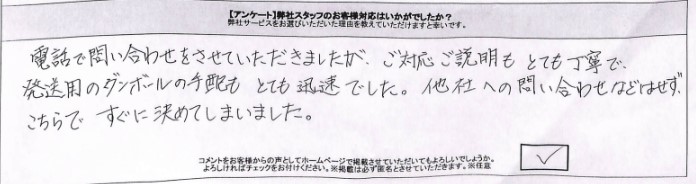 【アンケート】弊社スタッフのお客様対応はいかがでしたか？
弊社サービスをお選びいただいた理由を教えていただけますと幸いです。
電話で問い合わせをさせていただきましたが、ご対応ご説明もとても丁寧で、
発送用のダンボールの手配もとても迅速でした。他社への問い合わせなどはせず、
こちらですぐに決めてしまいました。
コメントをお客様からの声としてホームページで掲載させていただいてもよろしいでしょうか。
よろしければチェックをお付けください。※掲載は必ず匿名とさせていただきます。※任意